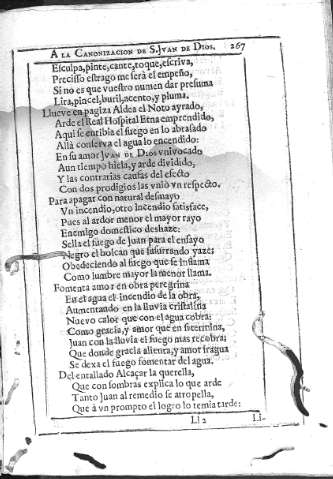 A LA CANONIZACION DE S. JVAN DE DIOS. 267
Esculpa, pinte, cante, toque, escriva,
Preciſſo eſtrago me ſerà el empeño,
Si no es que vueſtro numen dar preſuma
Lira, pincel, buril, acento, y pluma.
Llueve en pagiza Aldea el Noto ayrado,
Arde el Real Hoſpital Etna emprendido,
Aqui ſe entibia el fuego en lo abraſado
Allà conſerva el agua lo encendido:
En ſu amor JVAN DE DIOS vnivocado
Aun tiempo hiela, y arde dividido,
Y las contrarias cauſas del efecto
Con dos prodigios las vniò vn reſpecto.
Para apagar con natural deſmayo
Vn incendio, otro incendio ſatisface,
Pues al ardor menor el mayor rayo
Enemigo domeſtico deshaze:
Sella el fuego de Juan para el enſayo
Negro el bolcan que ſuſurrando yazes
Obedeciendo al fuego que ſe inflama
Como lumbre mayor la menor llama.
Fomenta amor en obra peregrina
En el agua el incendio de la obra,
Aumentando en la lluvia criſtalina
Nuevo calor que con el agua cobra:
Como gracia, y amor que en ſi
Juan con la lluvia el fuego mas recobra;
Que donde gracia alienta, y amor fragua
Se dexa el fuego fomentar del agua.
Del entallado Alcaçar la querella,
Que con ſombras explica lo que arde
Tanto Juan al remedio ſe atropella,
Que à vn prompto el logro lo temia tarde:
Ll 2 Li-